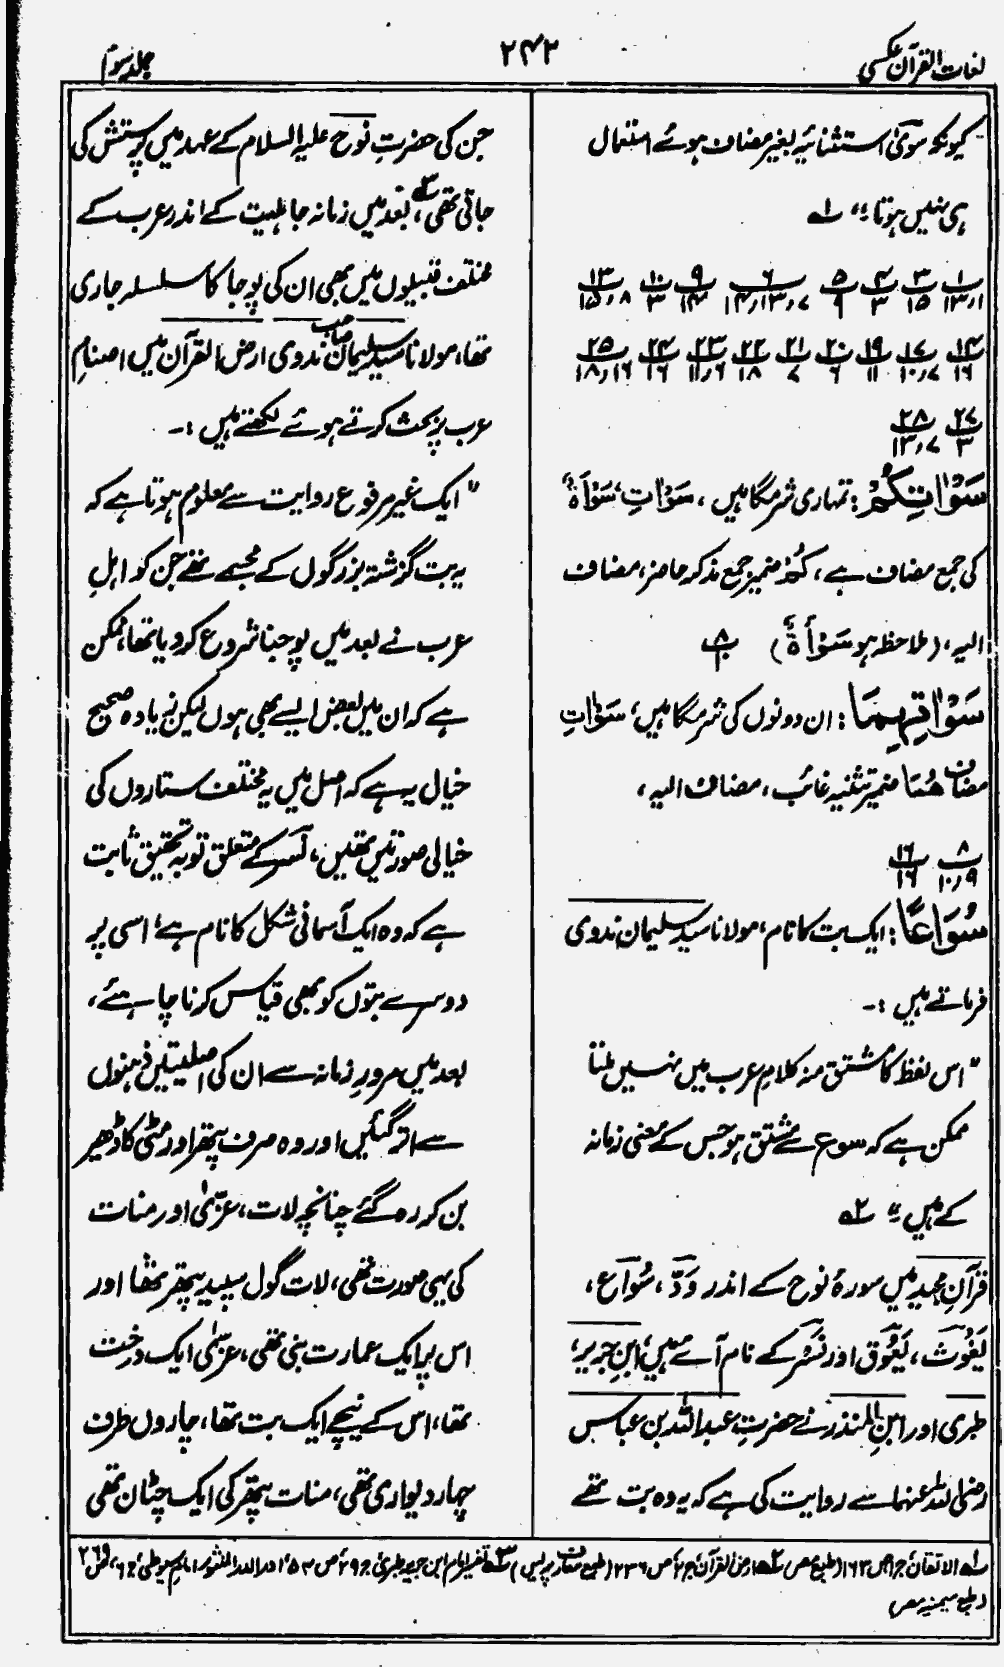 لغات القرآن عکسی
۲۴۲
جلد سوم
کیونکہ سویٰ استثنائیہ بغیر مضاف ہوئے استعمال
ہی نہیں ہوتا۔" ؎۱
۱/۱۳،۱ ۳/۱۵ ۴/۳ ۵/۹ ۶/۱۴،۱۳،۷ ۹/۱۴ ۱۰/۳ ۱۳/۱۵،۸
۱۴/۱۶ ۱۷/۱۰،۷ ۱۹/۱۱ ۲۰/۶ ۲۱/۷ ۲۲/۱۸ ۲۳/۱۱،۶ ۲۴/۱۶ ۲۵/۱۸،۱۶
۲۷/۳ ۲۸/۱۳،۷
سَوْاٰتِكُمْ : تمہاری شرمگاہیں، سَوْاٰتِ، سَوْأَةٌ
کی جمع مضاف ہے، کُمْ ضمیر جمع مذکر حاضر، مضاف
الیہ، (ملاحظہ ہو سَوْأَةَ) ۸
سَوْاٰتِهِمَا : ان دونوں کی شرمگاہیں، سَوْاٰتِ
مضاف هُمَا ضمیر تثنیہ غائب، مضاف الیہ،
۸/۱۰،۹ ۱۶/۱۶
سُوَاعًا : ایک بت کا نام، مولانا سید سلیمان ندوی
فرماتے ہیں :۔
"اس لفظ کا مشتق منہ کلامِ عرب میں نہیں ملتا
ممکن ہے کہ سوع سے مشتق ہو جس کے معنی زمانہ
کے ہیں" ؎۲
قرآنِ مجید میں سورۂ نوح کے اندر وَدّ، سُوَاع،
یَغُوث، یَعُوق اور نَسْر کے نام آئے ہیں، ابنِ جریر،
طبری اور ابن المنذر نے حضرتِ عبد اللہ بن عباس
رضی اللہ عنہما سے روایت کی ہے کہ یہ وہ بت تھے
جن کی حضرتِ نوح علیہ السلام کے عہد میں پرستش کی
جاتی تھی،؎۳ بعد میں زمانہ جاہلیت کے اندر عرب کے
مختلف قبیلوں میں بھی ان کی پوجا کا سلسلہ جاری
تھا، مولانا سید سلیمان صاحب ندوی ارض القرآن میں اصنامِ
عرب پر بحث کرتے ہوئے لکھتے ہیں :۔
"ایک غیر مرفوع روایت سے معلوم ہوتا ہے کہ
یہ بت گزشتہ بزرگوں کے مجسمے تھے جن کو اہلِ
عرب نے بعد میں پوجنا شروع کر دیا تھا، ممکن
ہے کہ ان میں بعض ایسے بھی ہوں لیکن زیادہ صحیح
خیال یہ ہے کہ اصل میں یہ مختلف ستاروں کی
خیالی صورتیں تھیں، نسر کے متعلق تو بہ تحقیق ثابت
ہے کہ وہ ایک آسمانی شکل کا نام ہے، اسی پر
دوسرے بتوں کو بھی قیاس کرنا چاہئے،
بعد میں مرورِ زمانہ سے ان کی اصلیتیں ذہنوں
سے اتر گئیں اور وہ صرف پتھر اور مٹی کا ڈھیر
بن کر رہ گئے چنانچہ لات، عزّیٰ اور منات
کی یہی صورت تھی، لات گول سپید پتھر تھا اور
اس پر ایک عمارت بنی تھی، عزّیٰ ایک درخت
تھا، اس کے نیچے ایک بت تھا، چاروں طرف
چہار دیواری تھی، منات پتھر کی ایک چٹان تھی
؎۱ الاتقان، ج۱، ص ۱۶۳ (طبع مصر) ؎۲ ارض القرآن، ج۲، ص ۲۳۶ (طبع معارف پریس) ؎۳ تفسیر امام ابن جریر طبری، ج۲۹، ص ۵۴، اور الدر المنثور، امام سیوطی، ج۶، ص ۲۶۹
(طبع میمنیہ مصر)